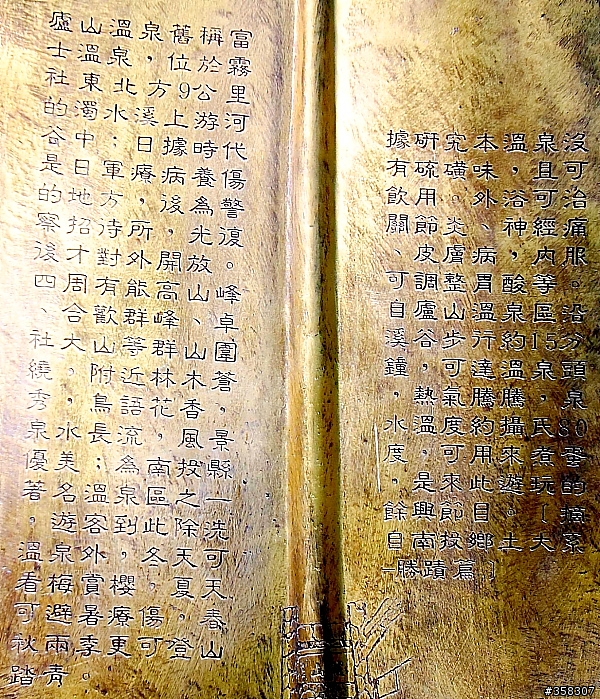 廬山溫泉舊稱富
士溫泉，位於霧
社東北方9公里
的濁水溪上游河
谷中；日據時代
是日軍療病養傷
的地方，後為警
察招待所，光復
後才對外開放。
四周有能高山峰
、合歡群峰、卓
社大山等群山圍
繞。附近林木蒼
秀，鳥語花香，
泉水長流，風景
優美；為南投縣
著名溫泉區之一
。遊客到此除洗
溫泉外，冬天可
看梅賞櫻。夏天
可避暑療傷。春
秋兩季更可登山
踏青。
據研究本溫泉沒
有硫磺味，且可
飲用。外浴可治
關節炎、神經痛
、皮膚病，內服
可調整胃酸等。
自廬山溫泉區沿
溪谷步行約15分
鐘，可達溫泉頭
，熱氣騰騰，泉
水溫度約攝氏80
度，可用來煮蛋
，是來此遊玩的
餘興節目。[摘
自南投鄉土大系
-勝蹟篇]
#358307